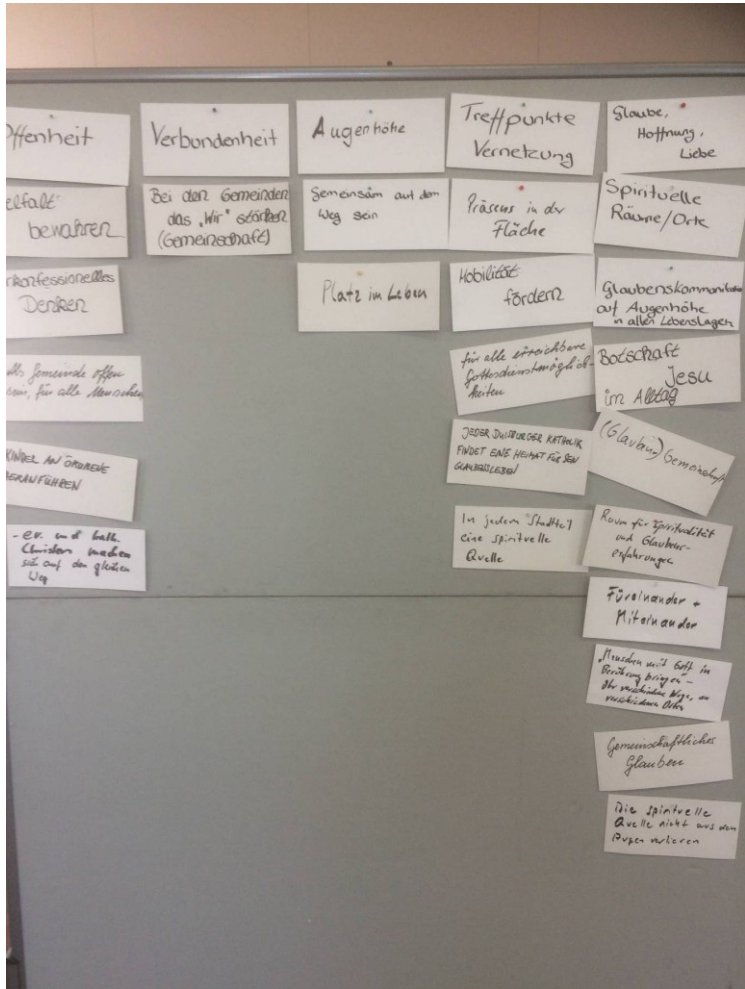 ffenheit
elfalt
bewahren
rkonfessionelles
Denken
als Gemeinde offen
sein, für alle Menschen
KINDER AN ÖKUMENE
HERANFÜHREN
- ev. und kath.
Christen machen
sich auf den gleichen
Weg
Verbundenheit
Bei den Gemeinden
das „Wir" stärken
(Gemeinschaft)
Augenhöhe
Gemeinsam auf dem
Weg sein
Platz im Leben
Treffpunkte
Vernetzung
Präsens in der
Fläche
Mobilität
fördern
für alle erreichbare
Gottesdienstmöglich-
keiten
JEDER DUISBURGER KATHOLIK
FINDET EINE HEIMAT FÜR SEIN
GLAUBENSLEBEN
In jedem Stadtteil
eine spirituelle
Quelle
Glaube,
Hoffnung,
Liebe
Spirituelle
Räume/Orte
Glaubenskommunikation
auf Augenhöhe
in allen Lebenslagen
Botschaft
Jesu
im Alltag
Gemeinschaft
Raum für Spiritualität
und Glaubens-
erfahrungen
Füreinander +
Miteinander
Menschen mit Gott in
Berührung bringen -
verschiedene Wege, an
verschiedenen Orten
Gemeinschaftliches
Glauben
Die spirituelle
Quelle nicht aus den
Augen verlieren